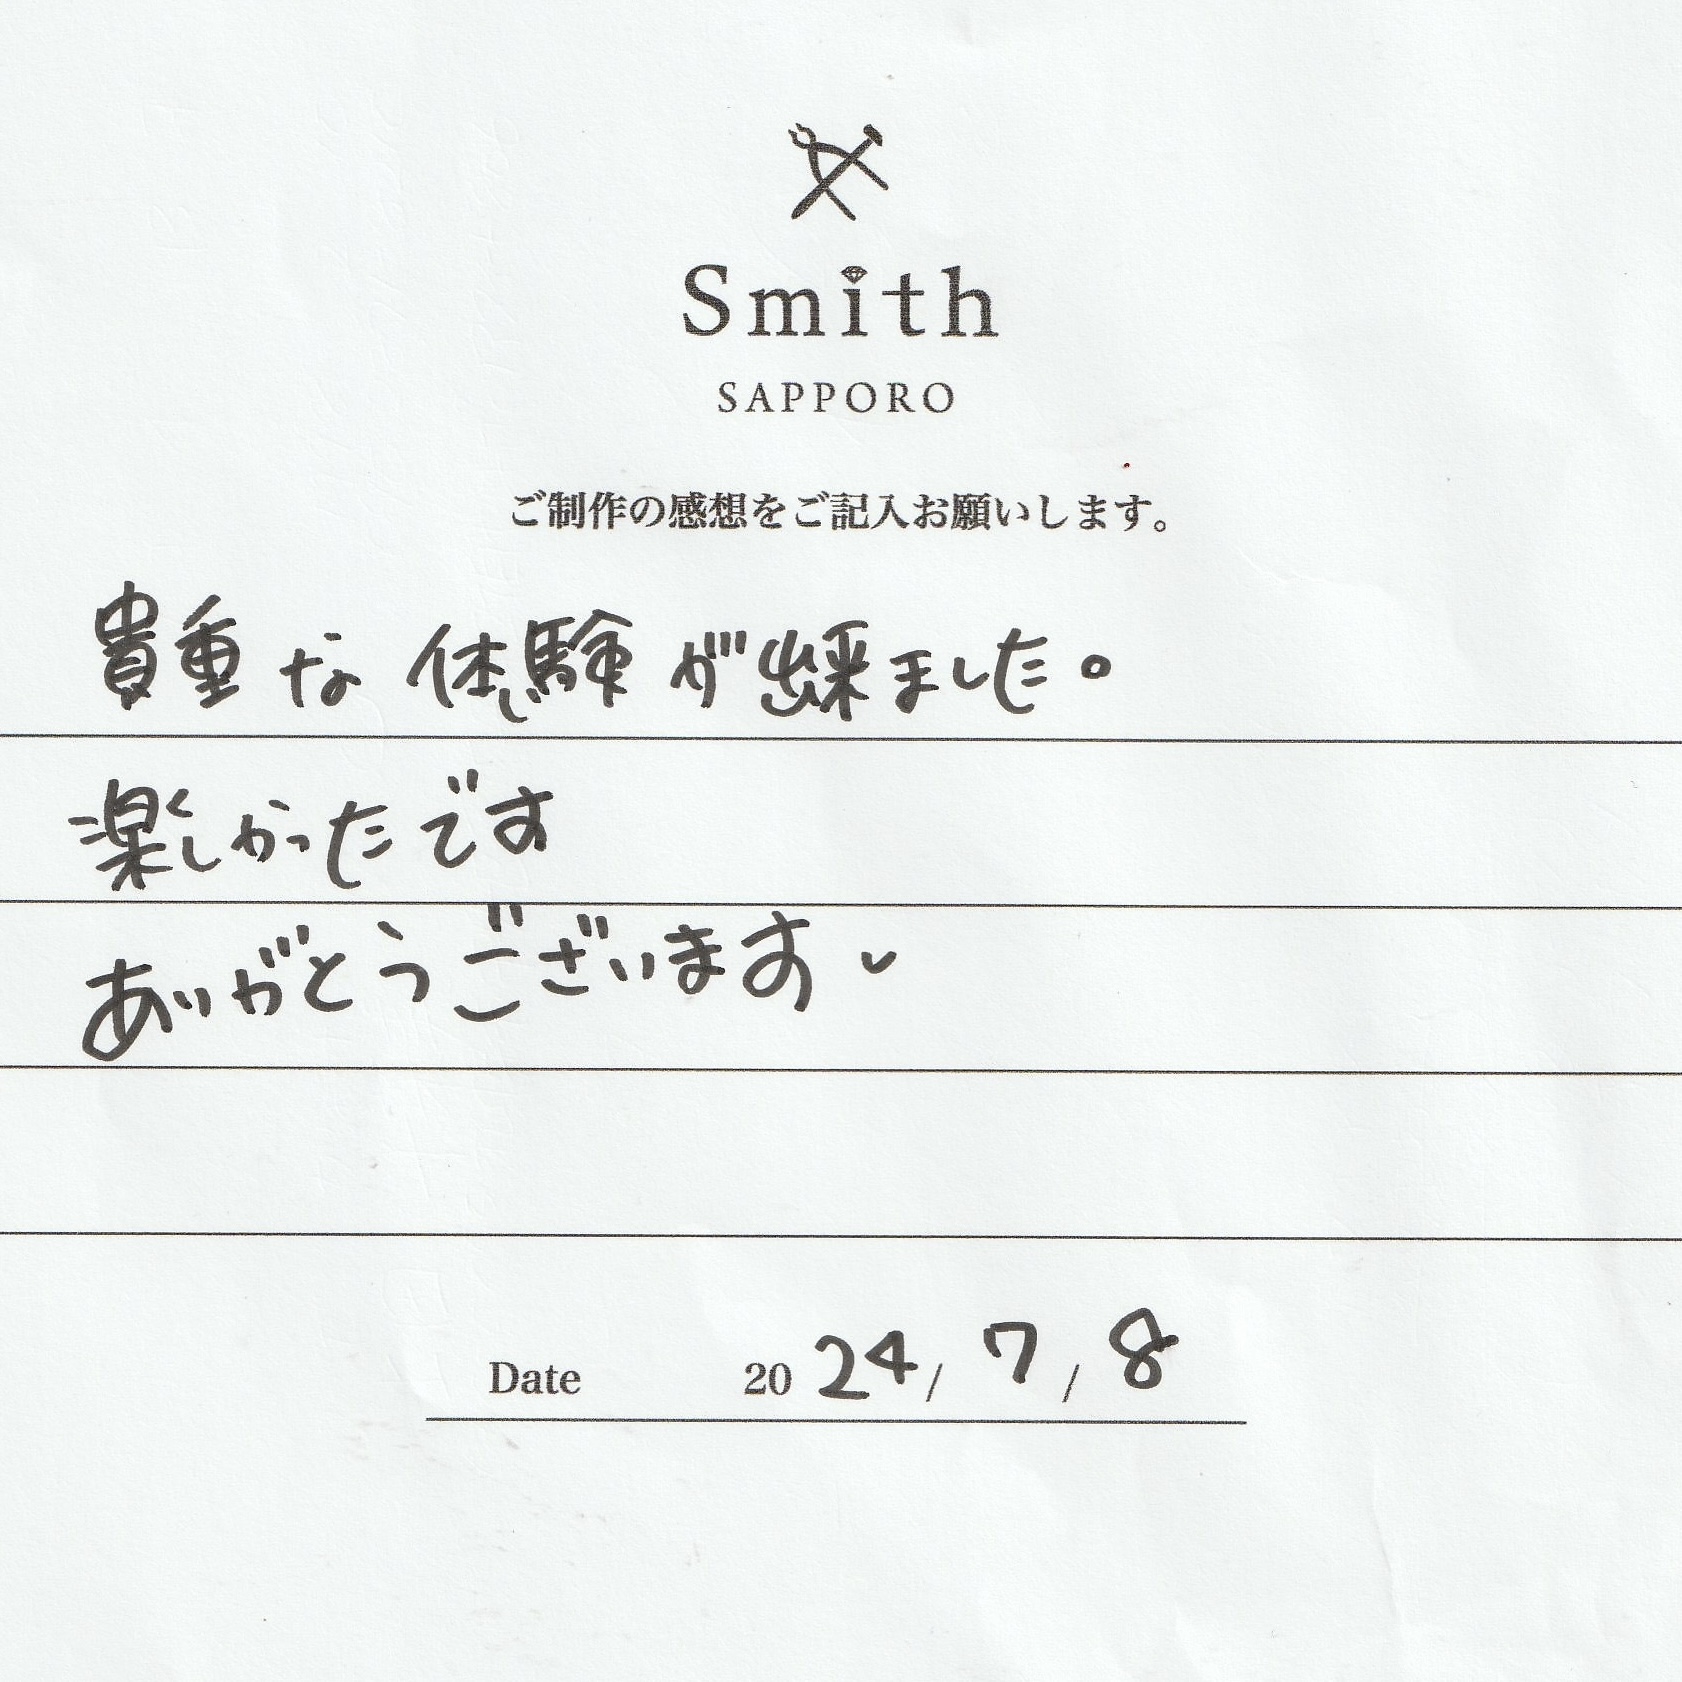 Smith
SAPPORO
ご制作の感想をご記入お願いします。
貴重な体験が出来ました。
楽しかったです
ありがとうございます
Date 2024/7/8